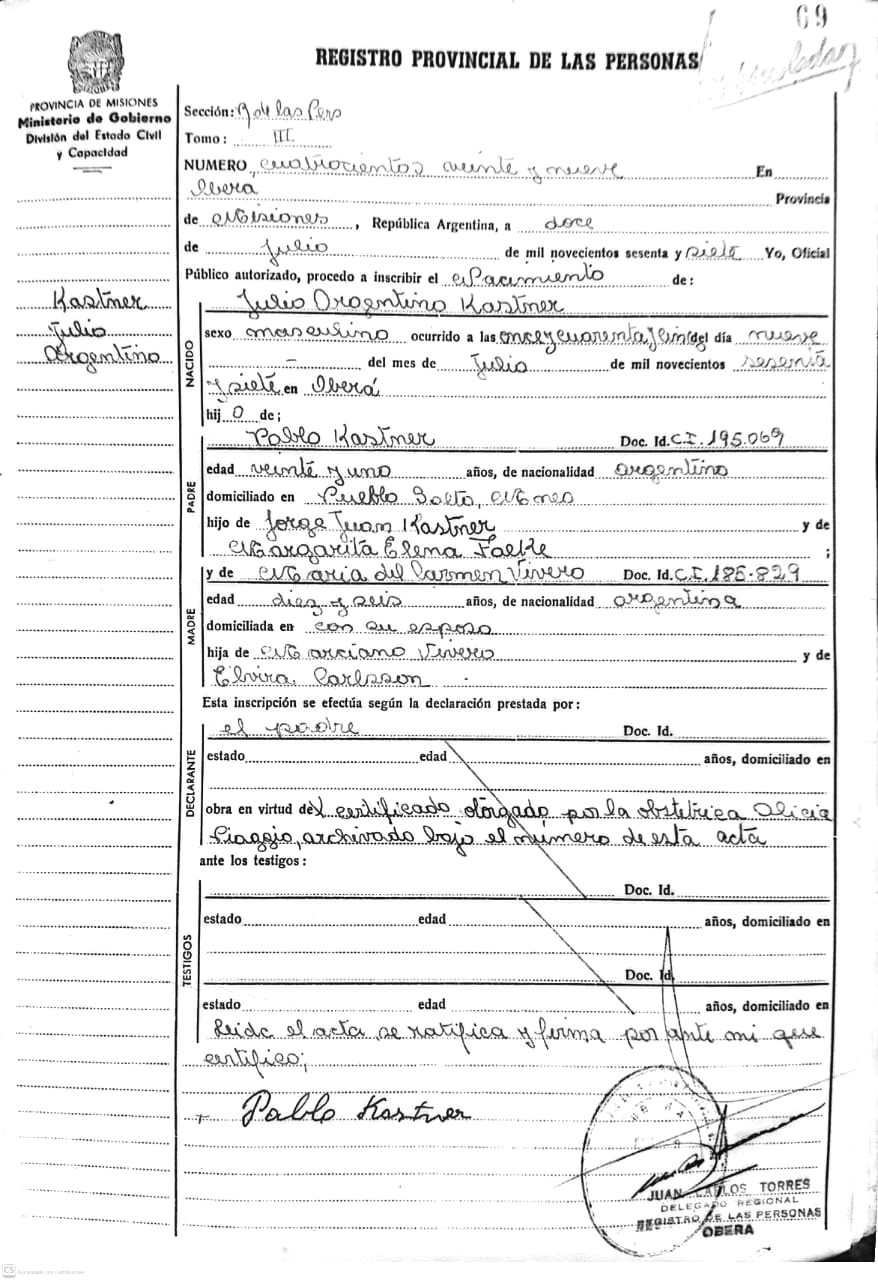 69
REGISTRO PROVINCIAL DE LAS PERSONAS
PROVINCIA DE MISIONES
Ministerio de Gobierno
División del Estado Civil
y Capacidad
Kastner
Julio
Argentino
Sección: R de las Pers
Tomo: III
NUMERO cuatrocientos veinte y nueve En
Obera Provincia
de Misiones, República Argentina, a doce
de Julio de mil novecientos sesenta y siete Yo, Oficial
Público autorizado, procedo a inscribir el Nacimiento de:
NACIDO
Julio Argentino Kastner
sexo masculino ocurrido a las once y cuarenta y cinco del día nueve
— del mes de Julio de mil novecientos sesenta
y siete en Oberá
hij o de;
PADRE
Pablo Kastner Doc. Id. C.I. 195.069
edad veinte y uno años, de nacionalidad argentino
domiciliado en Pueblo Salto, Mnes
hijo de Jorge Juan Kastner y de
Margarita Elena Faeke;
MADRE
y de Maria del Carmen Vivero Doc. Id. C.I. 186-829
edad diez y seis años, de nacionalidad argentina
domiciliada en con su esposo
hija de Marciano Vivero y de
Elvira Carlsson
Esta inscripción se efectúa según la declaración prestada por:
DECLARANTE
el padre Doc. Id.
estado edad años, domiciliado en
obra en virtud del certificado otorgado por la obstetrica Alicia
Piaggio, archivado bajo el número de esta acta
ante los testigos:
TESTIGOS
Doc. Id.
estado edad años, domiciliado en
Doc. Id.
estado edad años, domiciliado en
Leida el acta se ratifica y firma por ante mi que
certifico;
+ Pablo Kastner
JUAN CARLOS TORRES
DELEGADO REGIONAL
REGISTRO DE LAS PERSONAS
OBERA
CS Escaneado con CamScanner